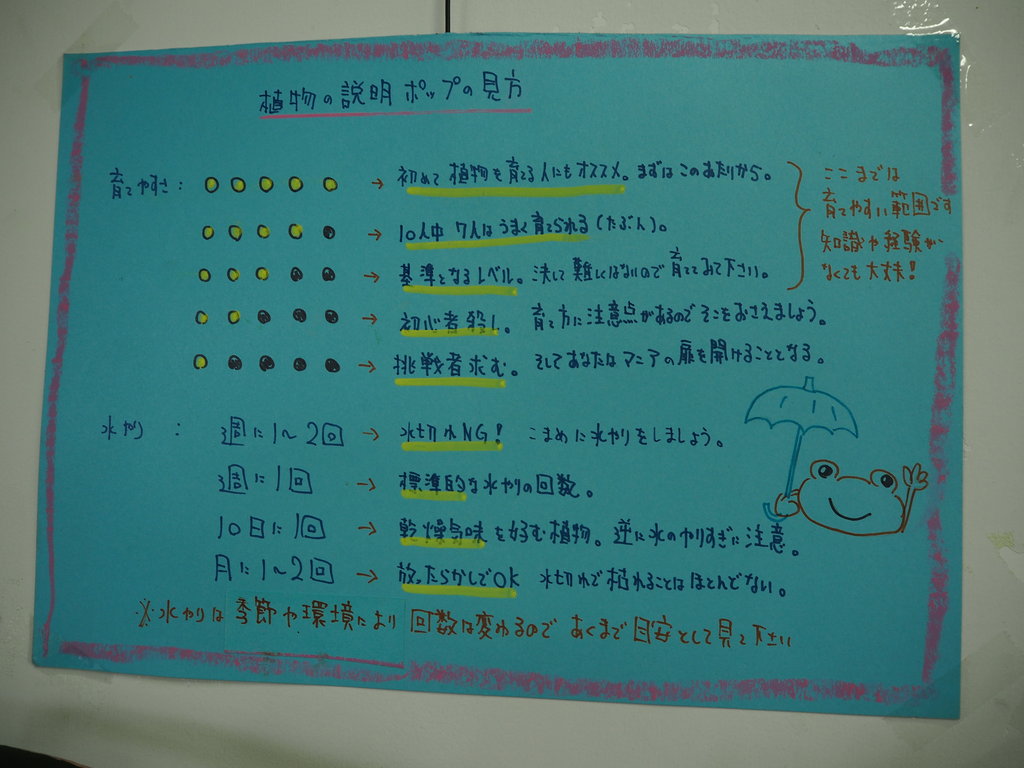 植物の説明ポップの見方
育てやすさ： → 初めて植物を育てる人にもオススメ。まずはこのあたりから。
→ 10人中7人はうまく育てられる(たぶん)。
→ 基準となるレベル。決して難しくはないので育ててみて下さい。
→ 初心者殺し。育て方に注意点があるのでそこをおさえましょう。
→ 挑戦者求む。そしてあなたはマニアの扉を開けることとなる。
ここまでは
育てやすい範囲です
知識や経験が
なくても大丈夫!
水やり： 週に1～2回 → 水切れNG! こまめに水やりをしましょう。
週に1回 → 標準的な水やりの回数。
10日に1回 → 乾燥気味を好む植物。逆に水のやりすぎに注意。
月に1～2回 → 放ったらかしでOK 水切れで枯れることはほとんどない。
※水やりは季節や環境により回数は変わるのであくまで目安として見て下さい